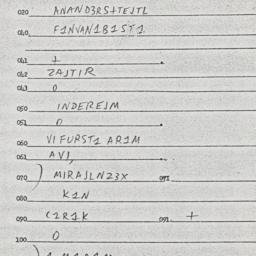 020 ANAND3RS+TEJTL
040 F1NVAN1B1ST1
041 1
042 ZAJTIR
043 0
050 INDEREJM
051 0
060 VIFURST1 AR1M
061 AVJ,
070 MIRAJLN23X 071
080 K1N
090 C1R1K 091 +
100 0